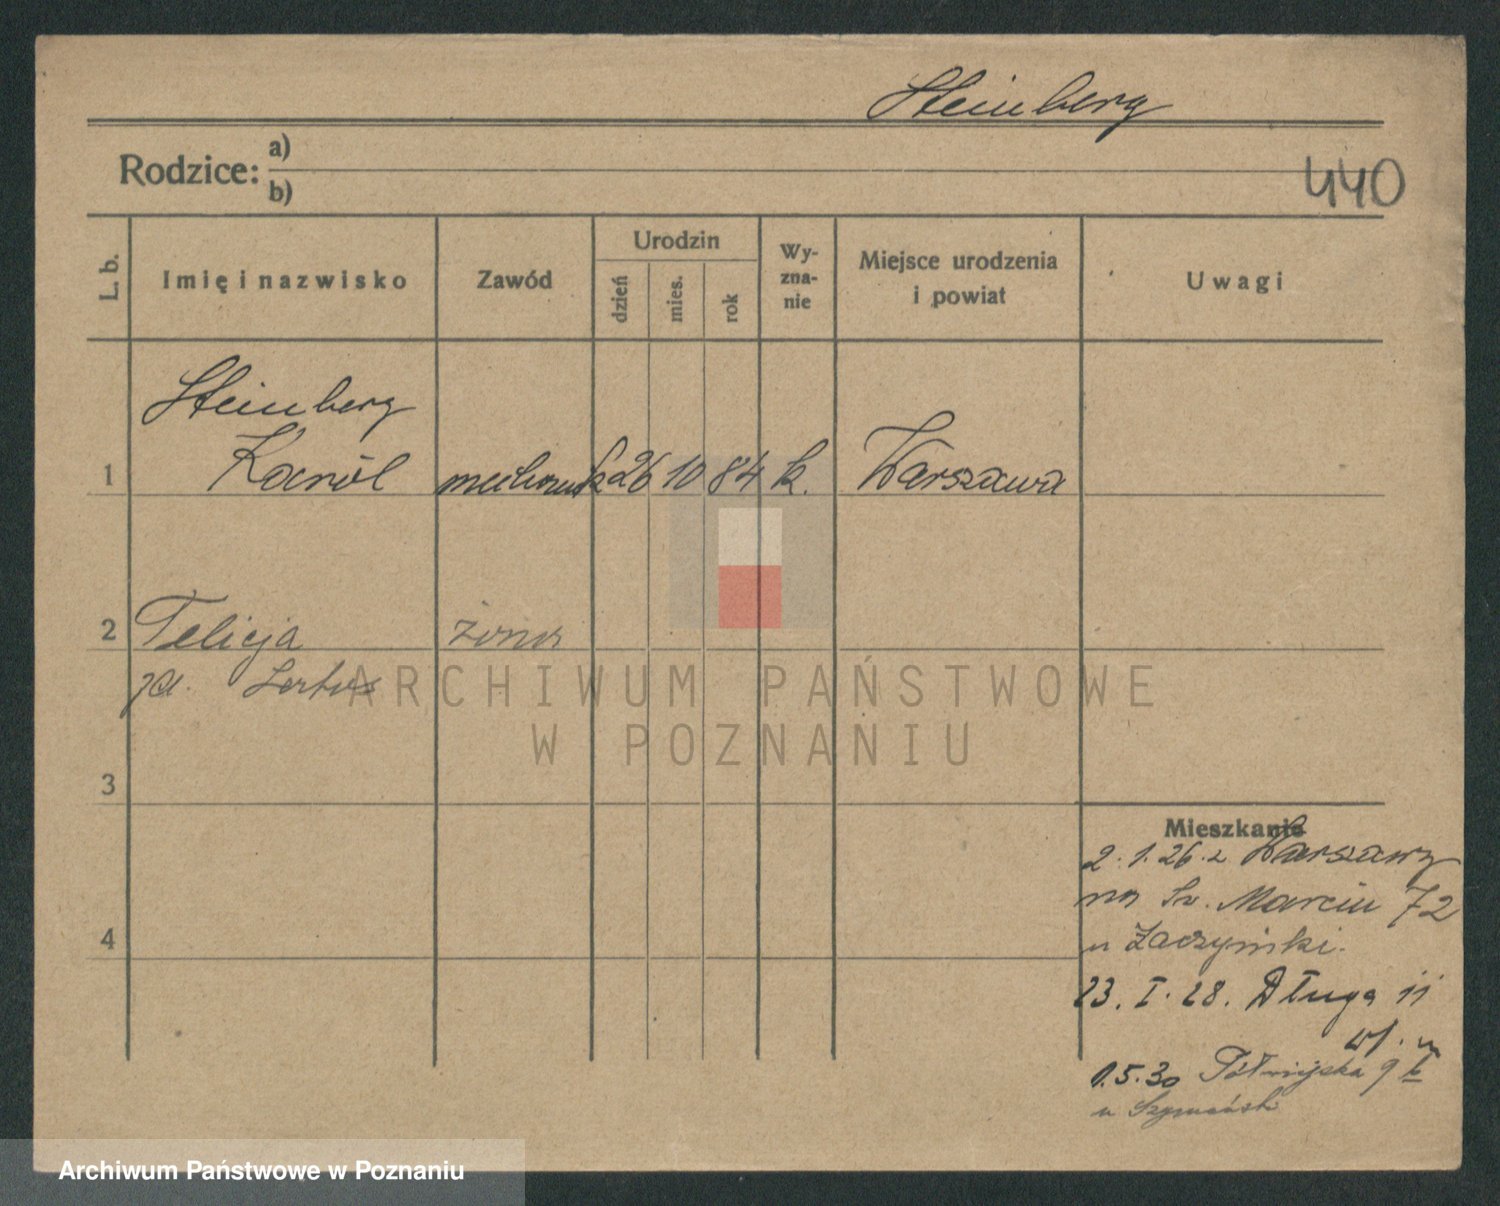 Steinberg
Rodzice: a)
b)
440
L. b.
Imię i nazwisko
Zawód
Urodzin
dzień
mies.
rok
Wy-
zna-
nie
Miejsce urodzenia
i powiat
Uwagi
Steinberg
1 Karól mechanik 26 10 84 k. Warszawa
2 Felicja żona
3
4
Mieszkanie
2.1.26. z Warszawy
na Św. Marcin 72
u
23. I. 28. Długa 11
1.5.30 Półwiejska 9
u
ARCHIWUM PAŃSTWOWE
W POZNANIU
Archiwum Państwowe w Poznaniu